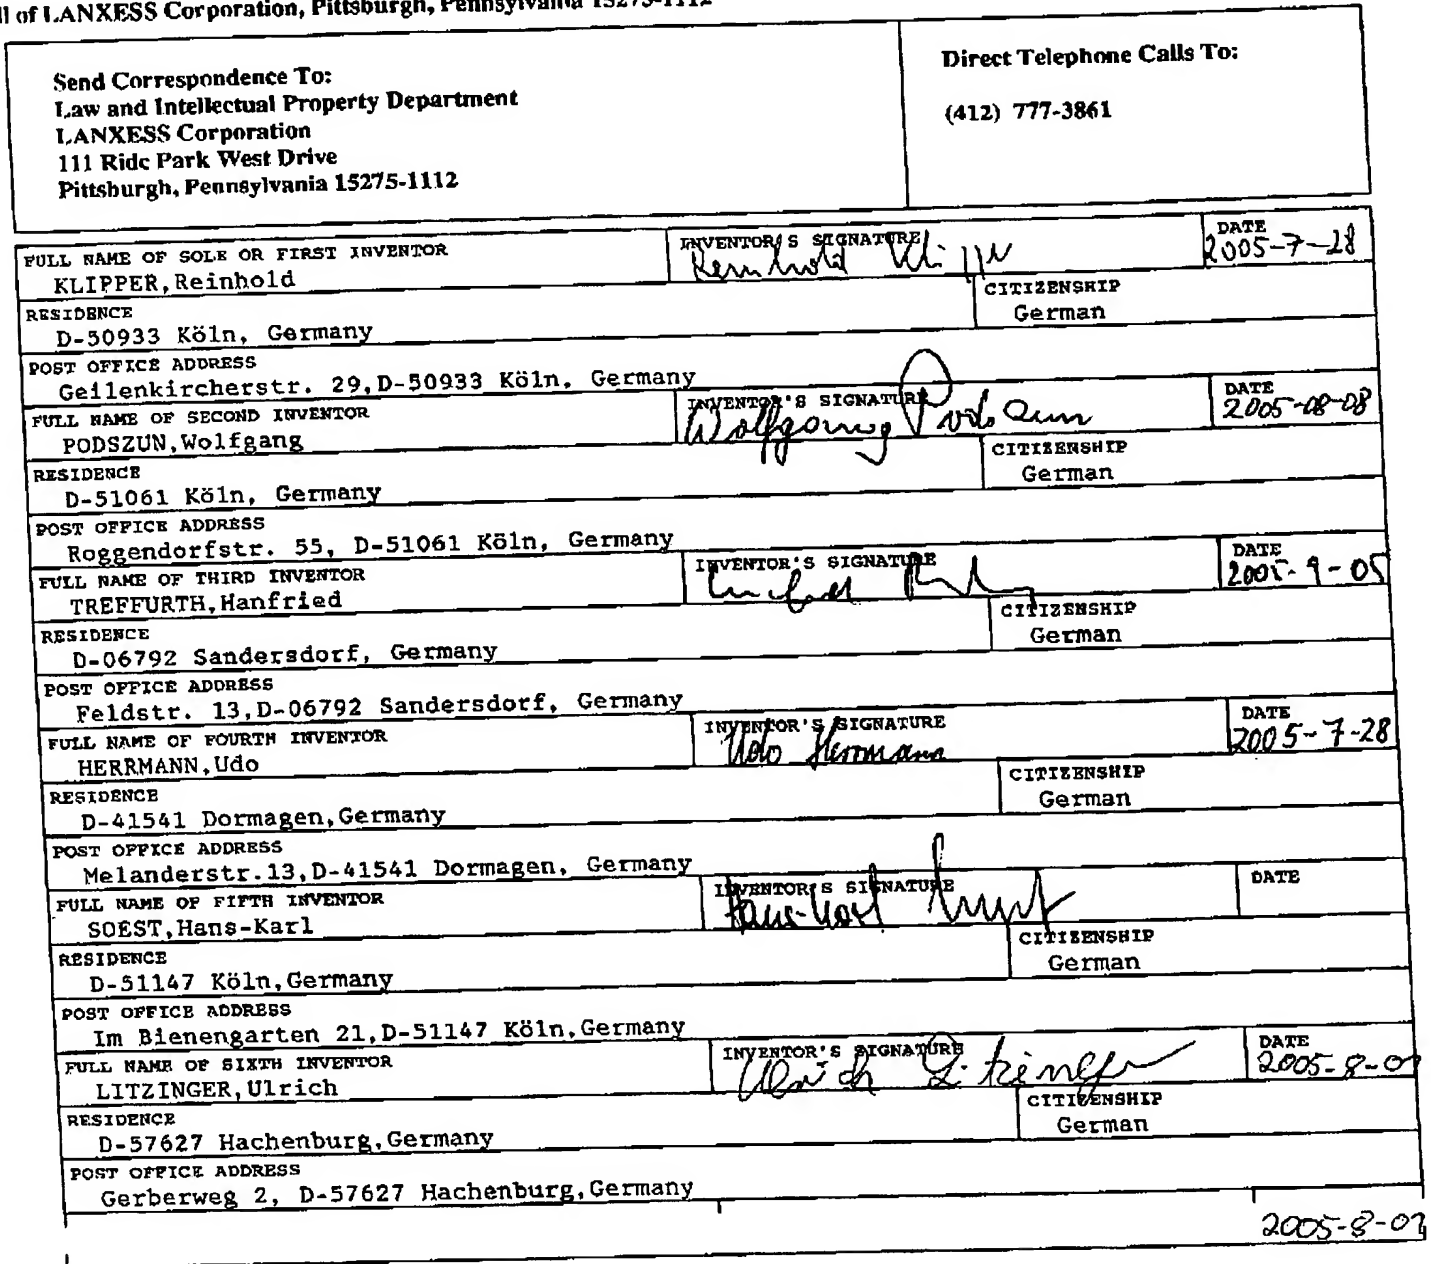 ll of LANXESS Corporation, Pittsburgh, Pennsylvania 15275-1112
Send Correspondence To:
Law and Intellectual Property Department
LANXESS Corporation
111 Ridc Park West Drive
Pittsburgh, Pennsylvania 15275-1112
Direct Telephone Calls To:
(412) 777-3861
FULL NAME OF SOLE OR FIRST INVENTOR
KLIPPER,Reinhold
INVENTOR'S SIGNATURE
Reinhold Klipper
DATE
2005-7-28
RESIDENCE
D-50933 Köln, Germany
CITIZENSHIP
German
POST OFFICE ADDRESS
Geilenkircherstr. 29,D-50933 Köln, Germany
FULL NAME OF SECOND INVENTOR
PODSZUN,Wolfgang
INVENTOR'S SIGNATURE
Wolfgang Podszun
DATE
2005-08-08
RESIDENCE
D-51061 Köln, Germany
CITIZENSHIP
German
POST OFFICE ADDRESS
Roggendorfstr. 55, D-51061 Köln, Germany
FULL NAME OF THIRD INVENTOR
TREFFURTH,Hanfried
INVENTOR'S SIGNATURE
DATE
2005-9-05
RESIDENCE
D-06792 Sandersdorf, Germany
CITIZENSHIP
German
POST OFFICE ADDRESS
Feldstr. 13,D-06792 Sandersdorf, Germany
FULL NAME OF FOURTH INVENTOR
HERRMANN,Udo
INVENTOR'S SIGNATURE
Udo Herrmann
DATE
2005-7-28
RESIDENCE
D-41541 Dormagen,Germany
CITIZENSHIP
German
POST OFFICE ADDRESS
Melanderstr.13,D-41541 Dormagen, Germany
FULL NAME OF FIFTH INVENTOR
SOEST,Hans-Karl
INVENTOR'S SIGNATURE
Hans-Karl
DATE
RESIDENCE
D-51147 Köln,Germany
CITIZENSHIP
German
POST OFFICE ADDRESS
Im Bienengarten 21,D-51147 Köln,Germany
FULL NAME OF SIXTH INVENTOR
LITZINGER,Ulrich
INVENTOR'S SIGNATURE
Ulrich Litzinger
DATE
RESIDENCE
D-57627 Hachenburg,Germany
CITIZENSHIP
German
POST OFFICE ADDRESS
Gerberweg 2, D-57627 Hachenburg,Germany